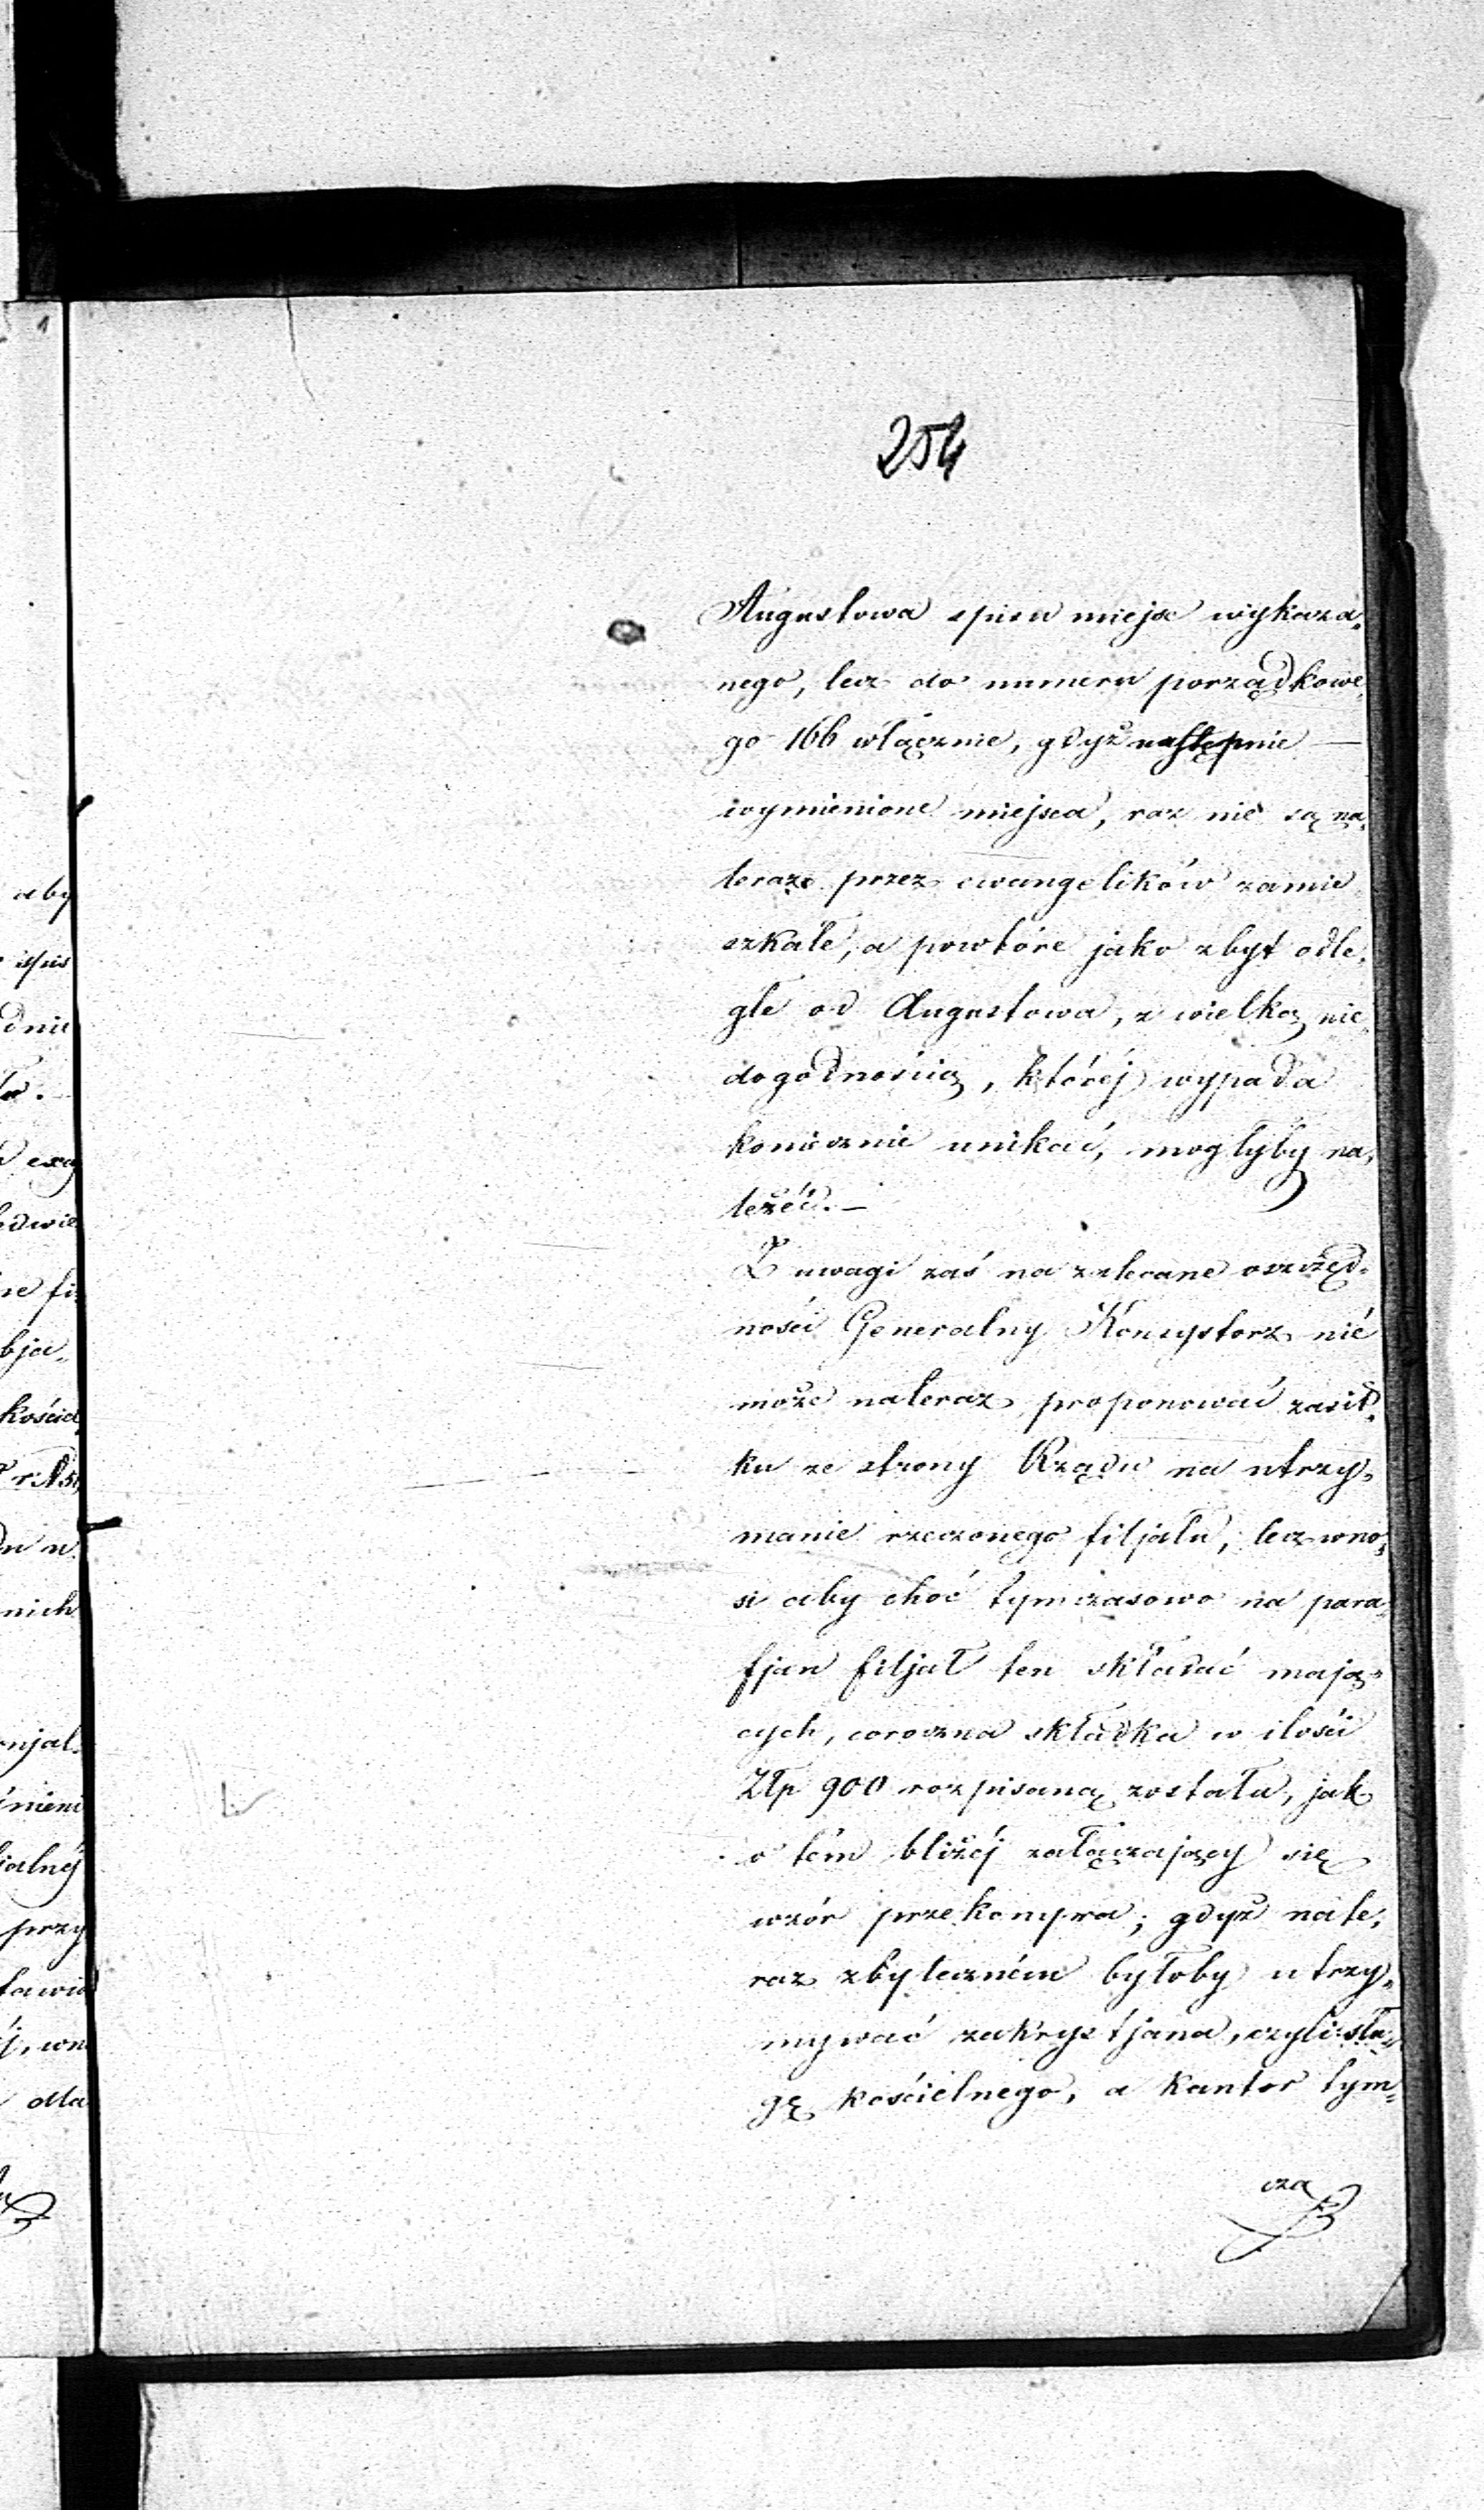 254
Augustowa spisu miejsc wykaza„
nego, lecz do numeru porządkowe„
go 166 włącznie, gdyż następnie —
wymienione miejsca, raz nie są na„
teraz przez ewangelików zamie„
szkałe, a powtóre jako zbyt odle„
głe od Augustowa, z wielką nie„
dogodnością, któréj wypada
koniecznie unikać, mogłyby na„
leżéć. —
Z uwagi zaś na zalecane oszczęd„
ności Generalny Konsystorz nie
może nateraz proponować zasił„
ku ze strony Rządu na utrzy„
manie rzeczonego filjału, lecz wno„
si aby choć tymczasowo na para„
fjan filjał ten składać mają„
cych, coroczna składka w ilości
Złp 900 rozpisaną została, jak
o tém bliżéj załączający się
wzór przekonywa; gdyż nate„
raz zbyteczném byłoby utrzy„
mywać zakrystjana, czyli słu„
gę kościelnego, a Kantor tym„
cza
aby
spis
dnie
exa
edwie
re fi„
bja„
kościa
nich
onjal„
jalnéj
przy
dla